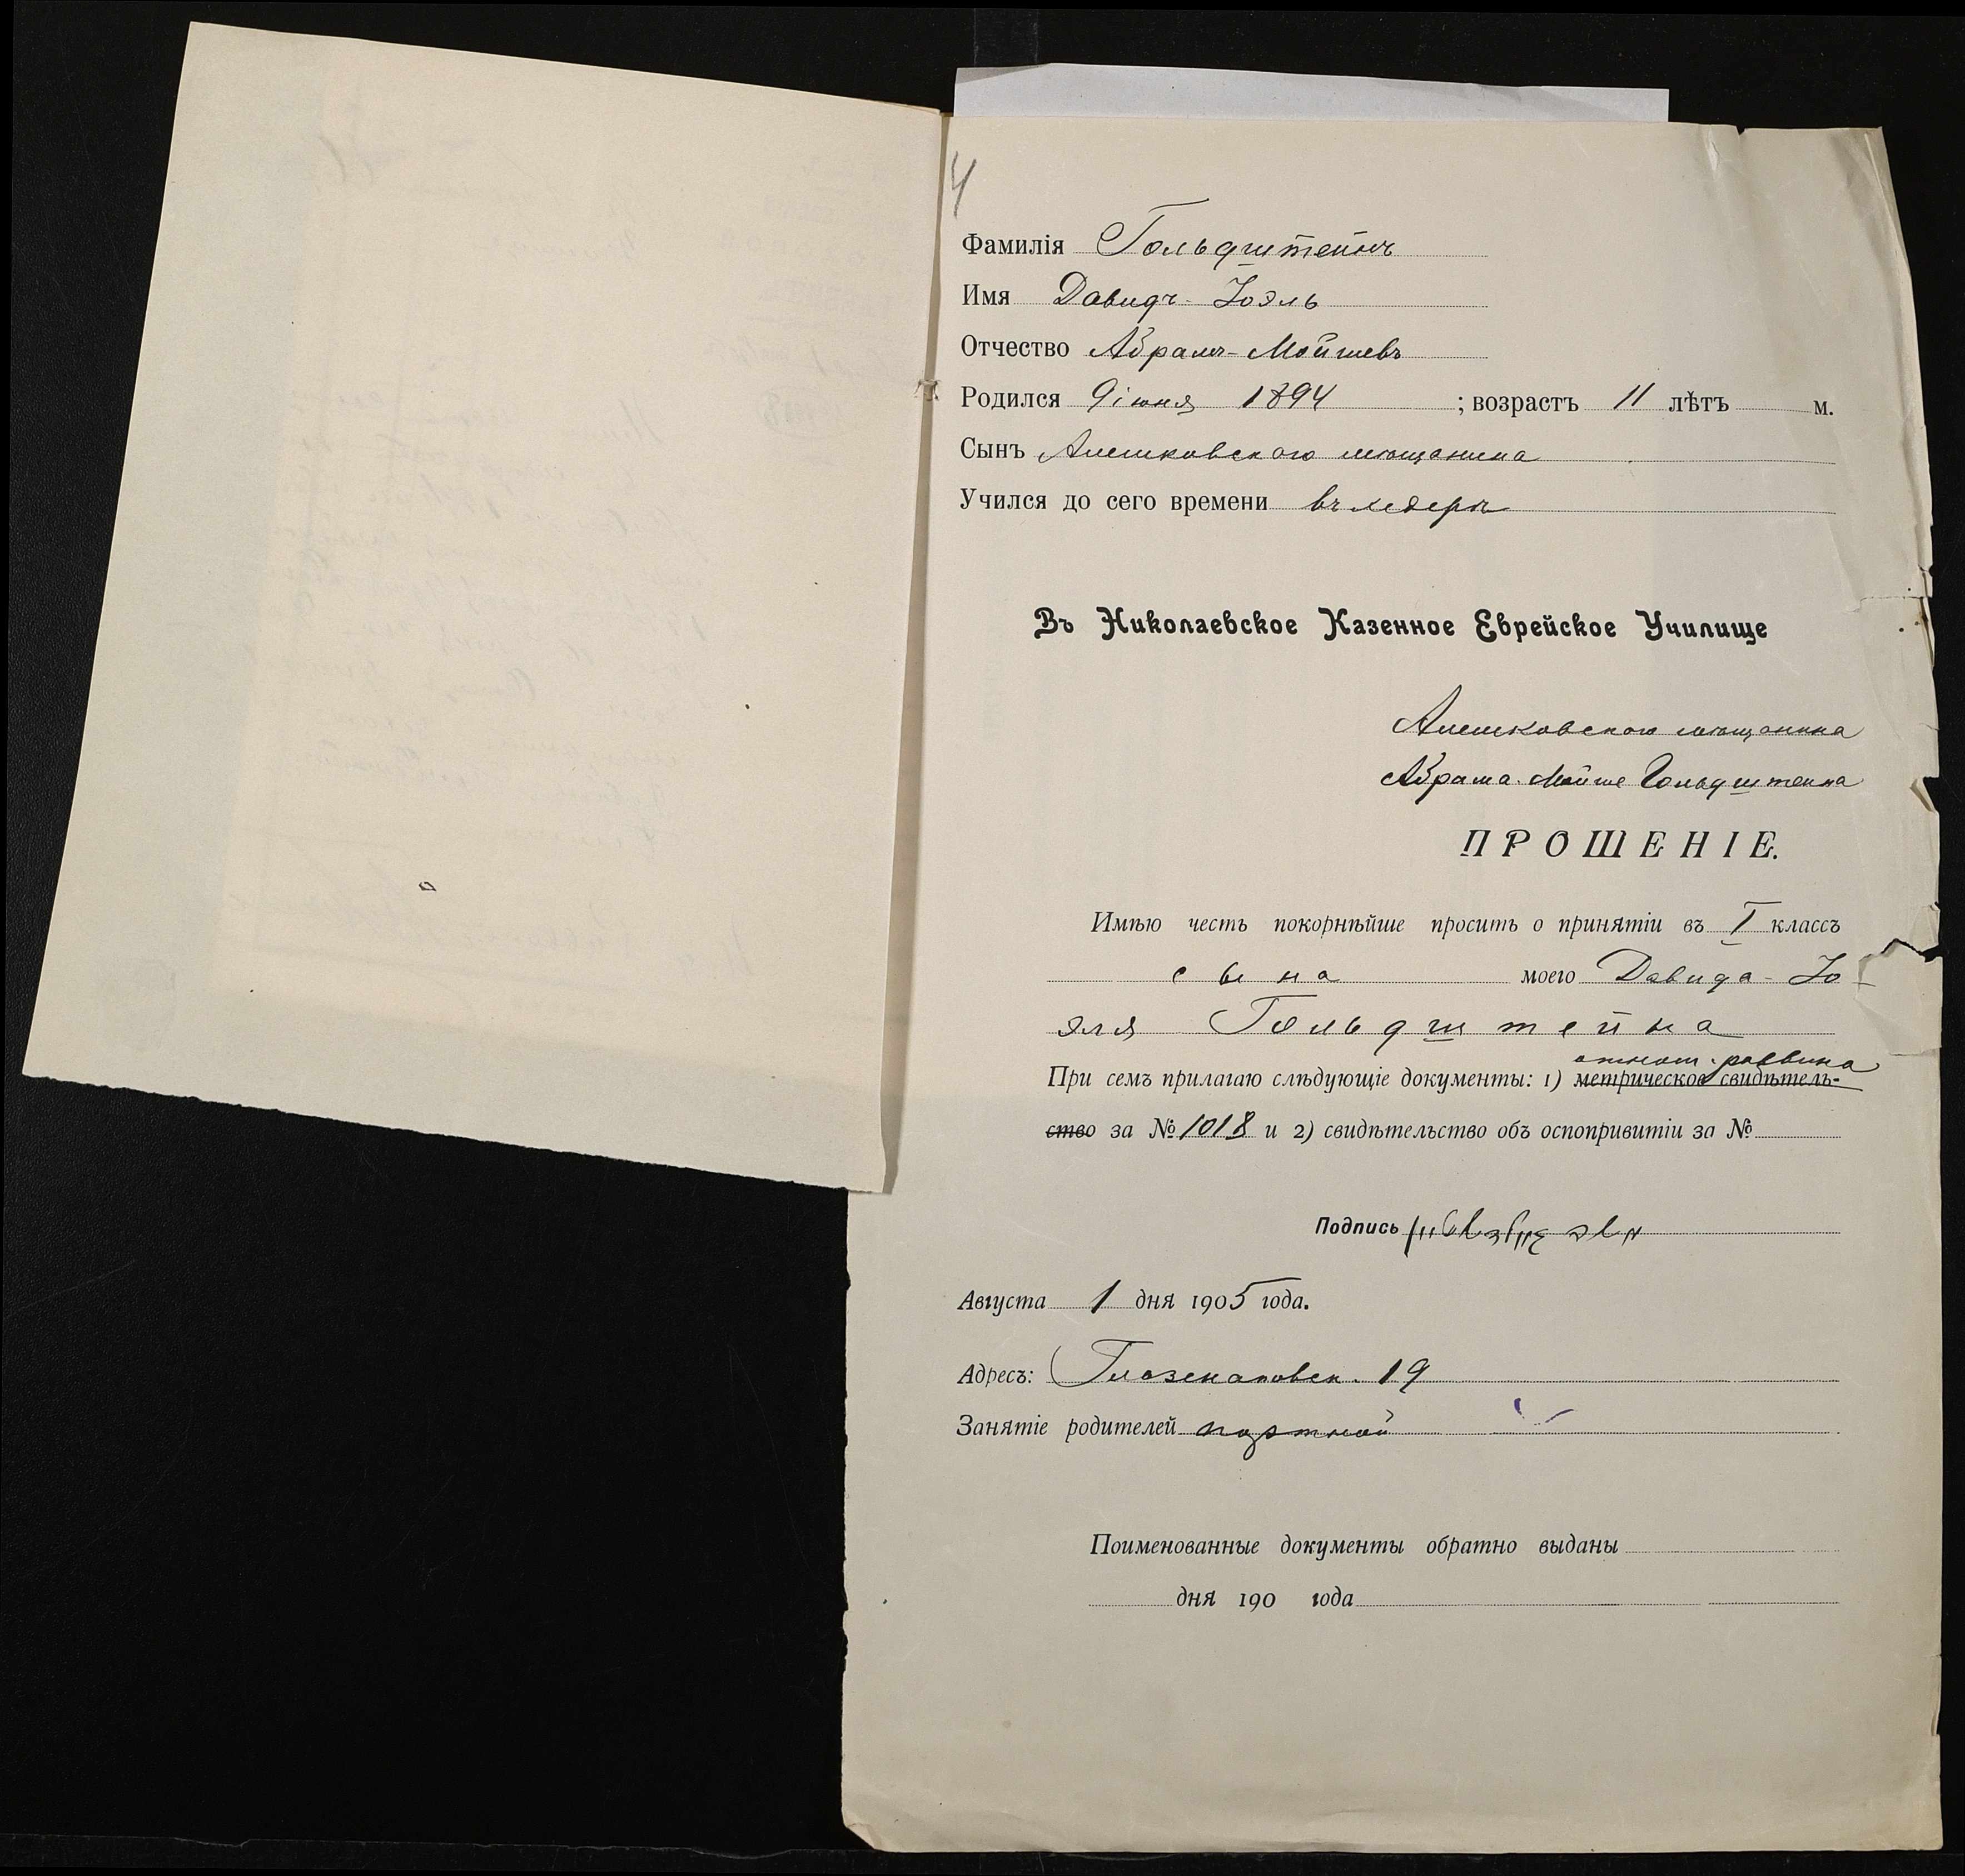 4
Фамилія Гольдштейнъ
Имя Давидъ-Іоэль
Отчество Абрамъ-Мойшевъ
Родился 9 іюня 1894 ; возрастъ 11 лѣтъ м.
Сынъ Алешковского мѣщанина
Учился до сего времени въ хедерѣ
Въ Николаевское Казенное Еврейское Училище
Алешковского мѣщанина
Абрама-Мойше Гольдштейна
ПРОШЕНІЕ.
Имѣю честь покорнѣйше просить о принятіи въ I классъ
сына моего Давида-Іо
эля Гольдштейна
раввина
При семъ прилагаю слѣдующіе документы: 1) метрическое свидѣтель-
ство за № 1018 и 2) свидѣтельство объ оспопривитіи за №
Подпись
Августа 1 дня 1905 года.
Адресъ: Глазенаповск. 19
Занятіе родителей портной
Поименованные документы обратно выданы
дня 190 года